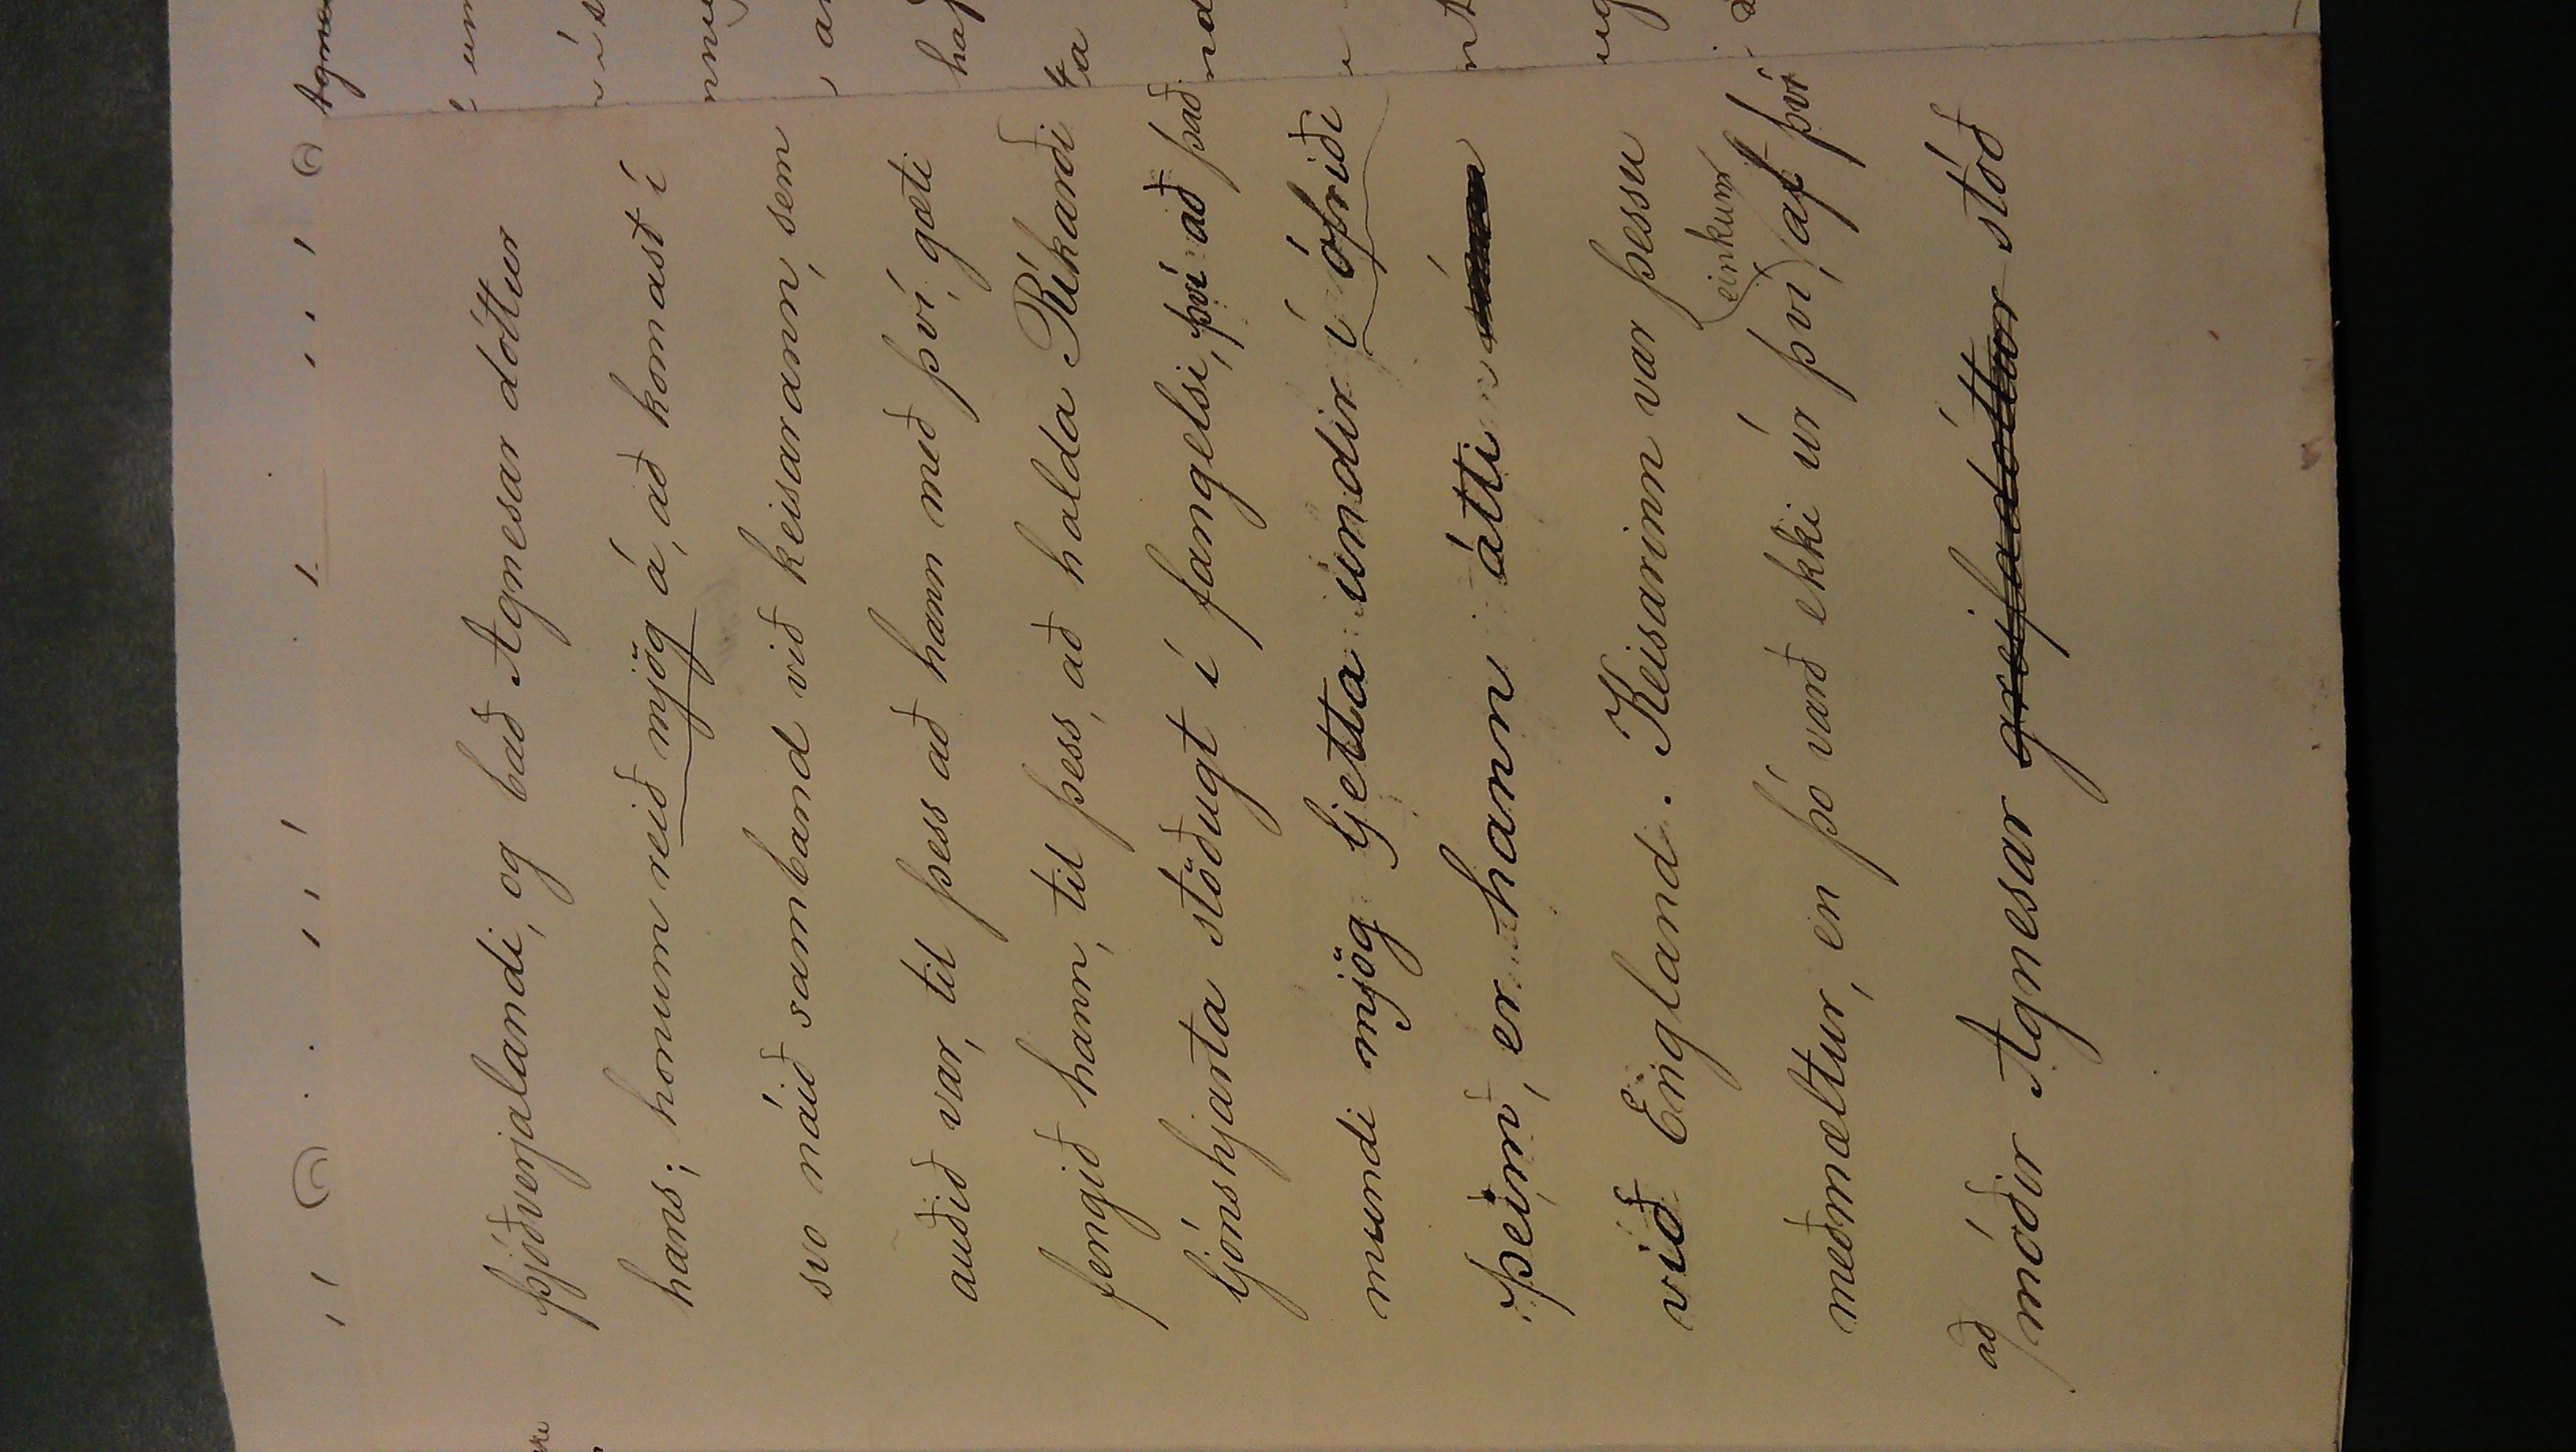 þjóðverjalandi, og bað Agnesar dóttur
hans; honum reið mjög á, að komast í
svo náið samband við keisarann, sem
auðið var, til þess að hann með því, gæti
fengið hann, til þess, að halda Ríkarði
ljónshjarta stöðugt í fangelsi, því að það
mundi mjög ljetta undir í ófriði
þeim, er hann átti
við England. Keisarinn var þessu
einkum
meðmæltur, en þó varð ekki úr því, af því
að móðir Agnesar greifadóttur stóð